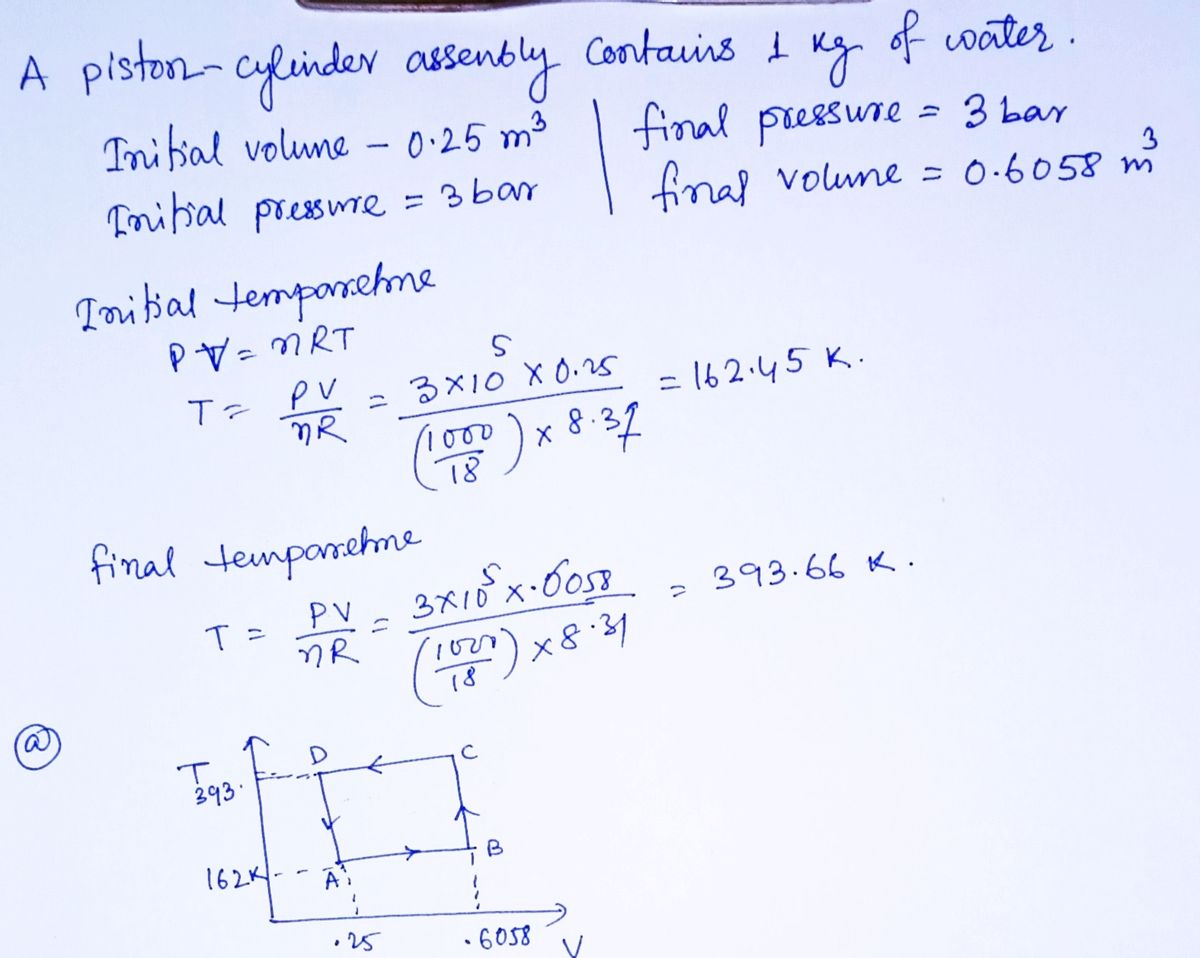 A piston-cylinder assembly Contains 1 kg of water.
Initial volume - 0.25 m³ | final pressure = 3 bar
Initial pressure = 3 bar | final volume = 0.6058 m³
Initial temparetme
PV = nRT
T = PV/nR = 3×10⁵ × 0.25 / (1000/18) × 8.31 = 162.45 K.
final temparetme
T = PV/nR = 3×10⁵ × .6058 / (1000/18) × 8.31 = 393.66 K.
(a)
T
D C
393.
B
162K A
.25 .6058 V